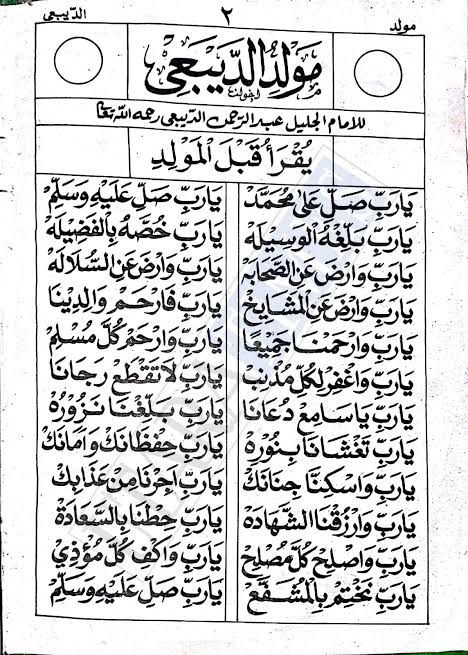 مولد ٢ الديبعى
مَوْلِدُ الدِّيْبَعِى
للامام الجليل عبد الرحمن الديبعى رحمه الله تعالى
يُقْرَأُ قَبْلَ الْمَوْلِدِ
يَارَبِّ صَلِّ عَلىٰ مُحَمَّدْ يَارَبِّ صَلِّ عَلَيْهِ وَسَلِّمْ
يَارَبِّ بَلِّغْهُ الْوَسِيْلَهْ يَارَبِّ خُصَّهُ بِالْفَضِيْلَهْ
يَارَبِّ وَارْضَ عَنِ الصَّحَابَهْ يَارَبِّ وَارْضَ عَنِ السُّلَالَهْ
يَارَبِّ وَارْضَ عَنِ الْمَشَايِخْ يَارَبِّ فَارْحَمْ وَالِدِيْنَا
يَارَبِّ وَارْحَمْنَا جَمِيْعًا يَارَبِّ وَارْحَمْ كُلَّ مُسْلِمْ
يَارَبِّ وَاغْفِرْ لِكُلِّ مُذْنِبْ يَارَبِّ لَا تَقْطَعْ رَجَانَا
يَارَبِّ يَا سَامِعْ دُعَانَا يَارَبِّ بَلِّغْنَا نَزُوْرُهْ
يَارَبِّ تَغْشَانَا بِنُوْرِهْ يَارَبِّ حِفْظَانَكْ وَامَانَكْ
يَارَبِّ وَاسْكِنَّا جِنَانَكْ يَارَبِّ اَجِرْنَا مِنْ عَذَابِكْ
يَارَبِّ وَارْزُقْنَا الشَّهَادَهْ يَارَبِّ حِطْنَا بِالسَّعَادَةْ
يَارَبِّ وَاصْلِحْ كُلَّ مُصْلِحْ يَارَبِّ وَاكْفِ كُلَّ مُؤْذِيْ
يَارَبِّ نَخْتِمْ بِالْمُشَفَّعْ يَارَبِّ صَلِّ عَلَيْهِ وَسَلِّمْ